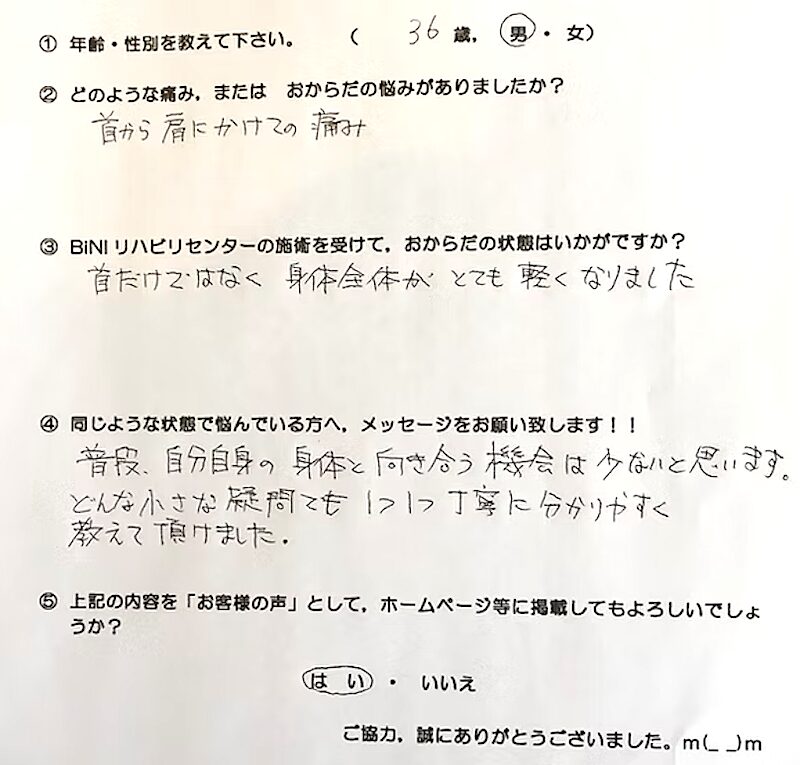 ① 年齢・性別を教えて下さい。 ( 36 歳, 男・女)
② どのような痛み, または おからだの悩みがありましたか?
首から肩にかけての痛み
③ BiNIリハビリセンターの施術を受けて, おからだの状態はいかがですか?
首だけではなく 身体全体が とても 軽くなりました
④ 同じような状態で悩んでいる方へ, メッセージをお願い致します!!
普段、自分自身の身体と向き合う機会は少ないと思います。
どんな小さな疑問でも1つ1つ丁寧に分かりやすく
教えて頂けました.
⑤ 上記の内容を「お客様の声」として, ホームページ等に掲載してもよろしいでしょ
うか?
はい ・ いいえ
ご協力, 誠にありがとうございました。m(_ _)m